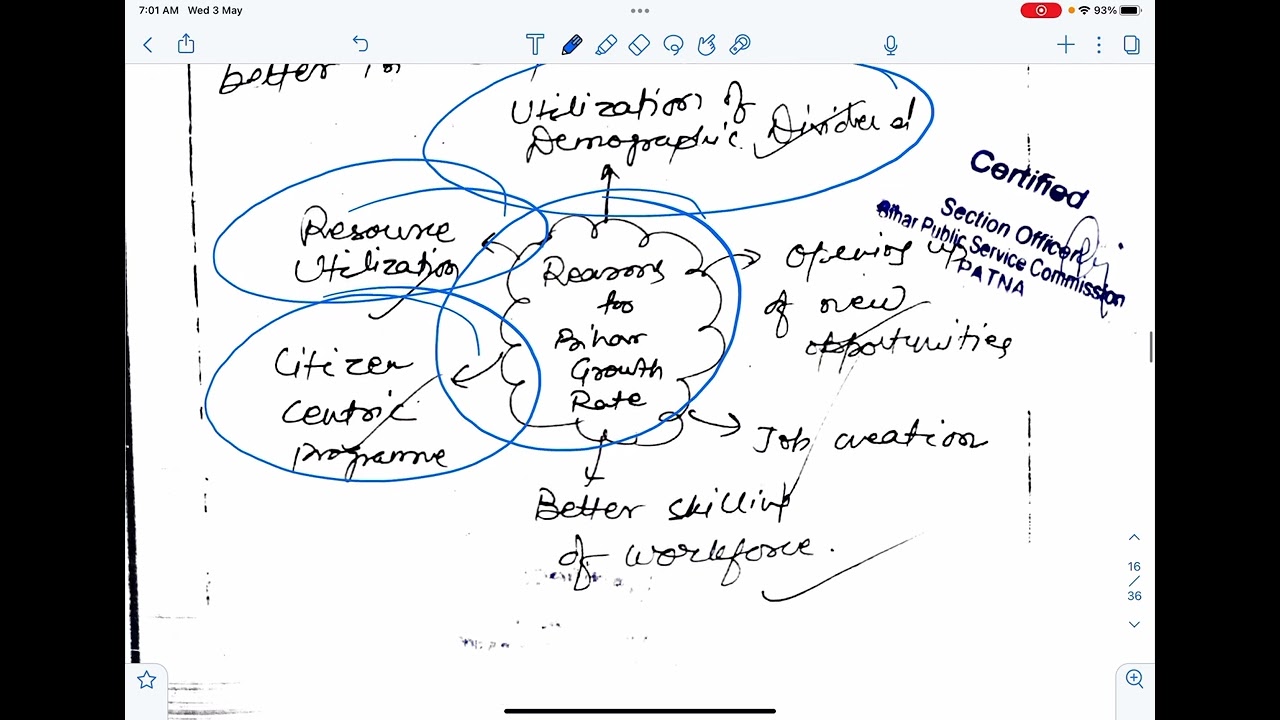 7:01 AM Wed 3 May
93%
better in
Utilization of
Demographic Dividend
Certified
Section Officer
Bihar Public Service Commission
PATNA
Resource
Utilization
Reasons
for
Bihar
Growth
Rate
Opening up
of new
opportunities
Citizen
Centric
programme
Job creation
Better skilling
of workforce.
16
/
36